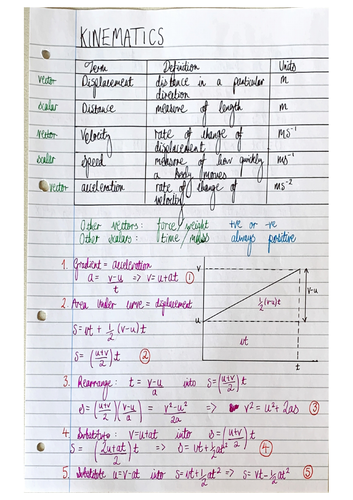 KINEMATICS
Term Definition Units
vector Displacement distance in a particular direction m
scalar Distance measure of length m
vector Velocity rate of change of displacement ms⁻¹
scalar Speed measure of how quickly a body moves ms⁻¹
vector acceleration rate of change of velocity ms⁻²
Other vectors: force/weight +ve or -ve
Other scalars: time/mass always positive
1. Gradient = acceleration
a = v-u/t => v = u+at ①
2. Area under curve = displacement
S = ut + 1/2 (v-u)t
S = (u+v/2)t ②
v
u
1/2(v-u)t
v-u
ut
t
3. Rearrange: t = v-u/a into S = (u+v/2)t
S = (u+v/2)(v-u/a) = v²-u²/2a => v² = u² + 2as ③
4. Substitute: v = u+at into S = (u+v/2)t
S = (2u+at/2)t => S = ut + 1/2at² ④
5. Substitute u = v-at into S = ut + 1/2at² => S = vt - 1/2at² ⑤